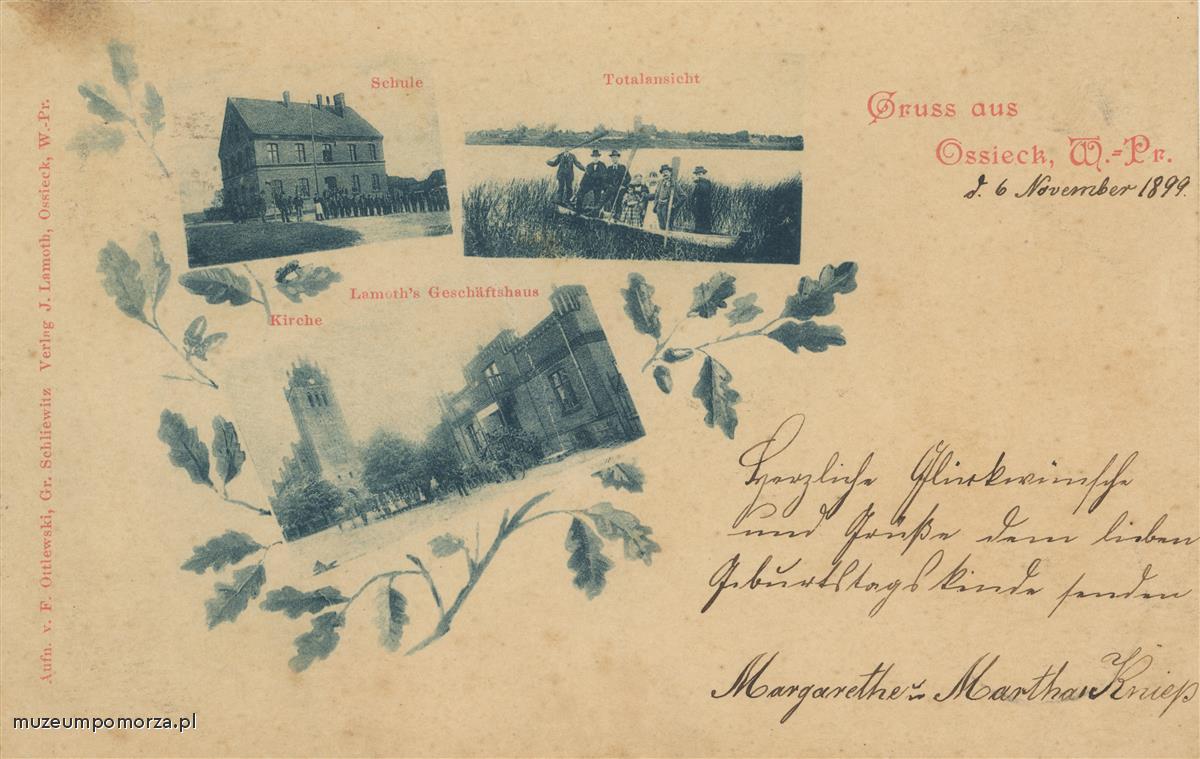 Schule
Totalansicht
Gruss aus
Ossieck, W.-Pr.
d. 6 November 1899.
Lamoth's Geschäftshaus
Kirche
Aufn. v. F. Ottlewski, Gr. Schliewitz Verlag J. Lamoth, Ossieck, W.-Pr.
Herzliche Glückwünsche
und Grüße dem lieben
Geburtstagskinde senden
Margarethe u. Martha Knieß
muzeumpomorza.pl